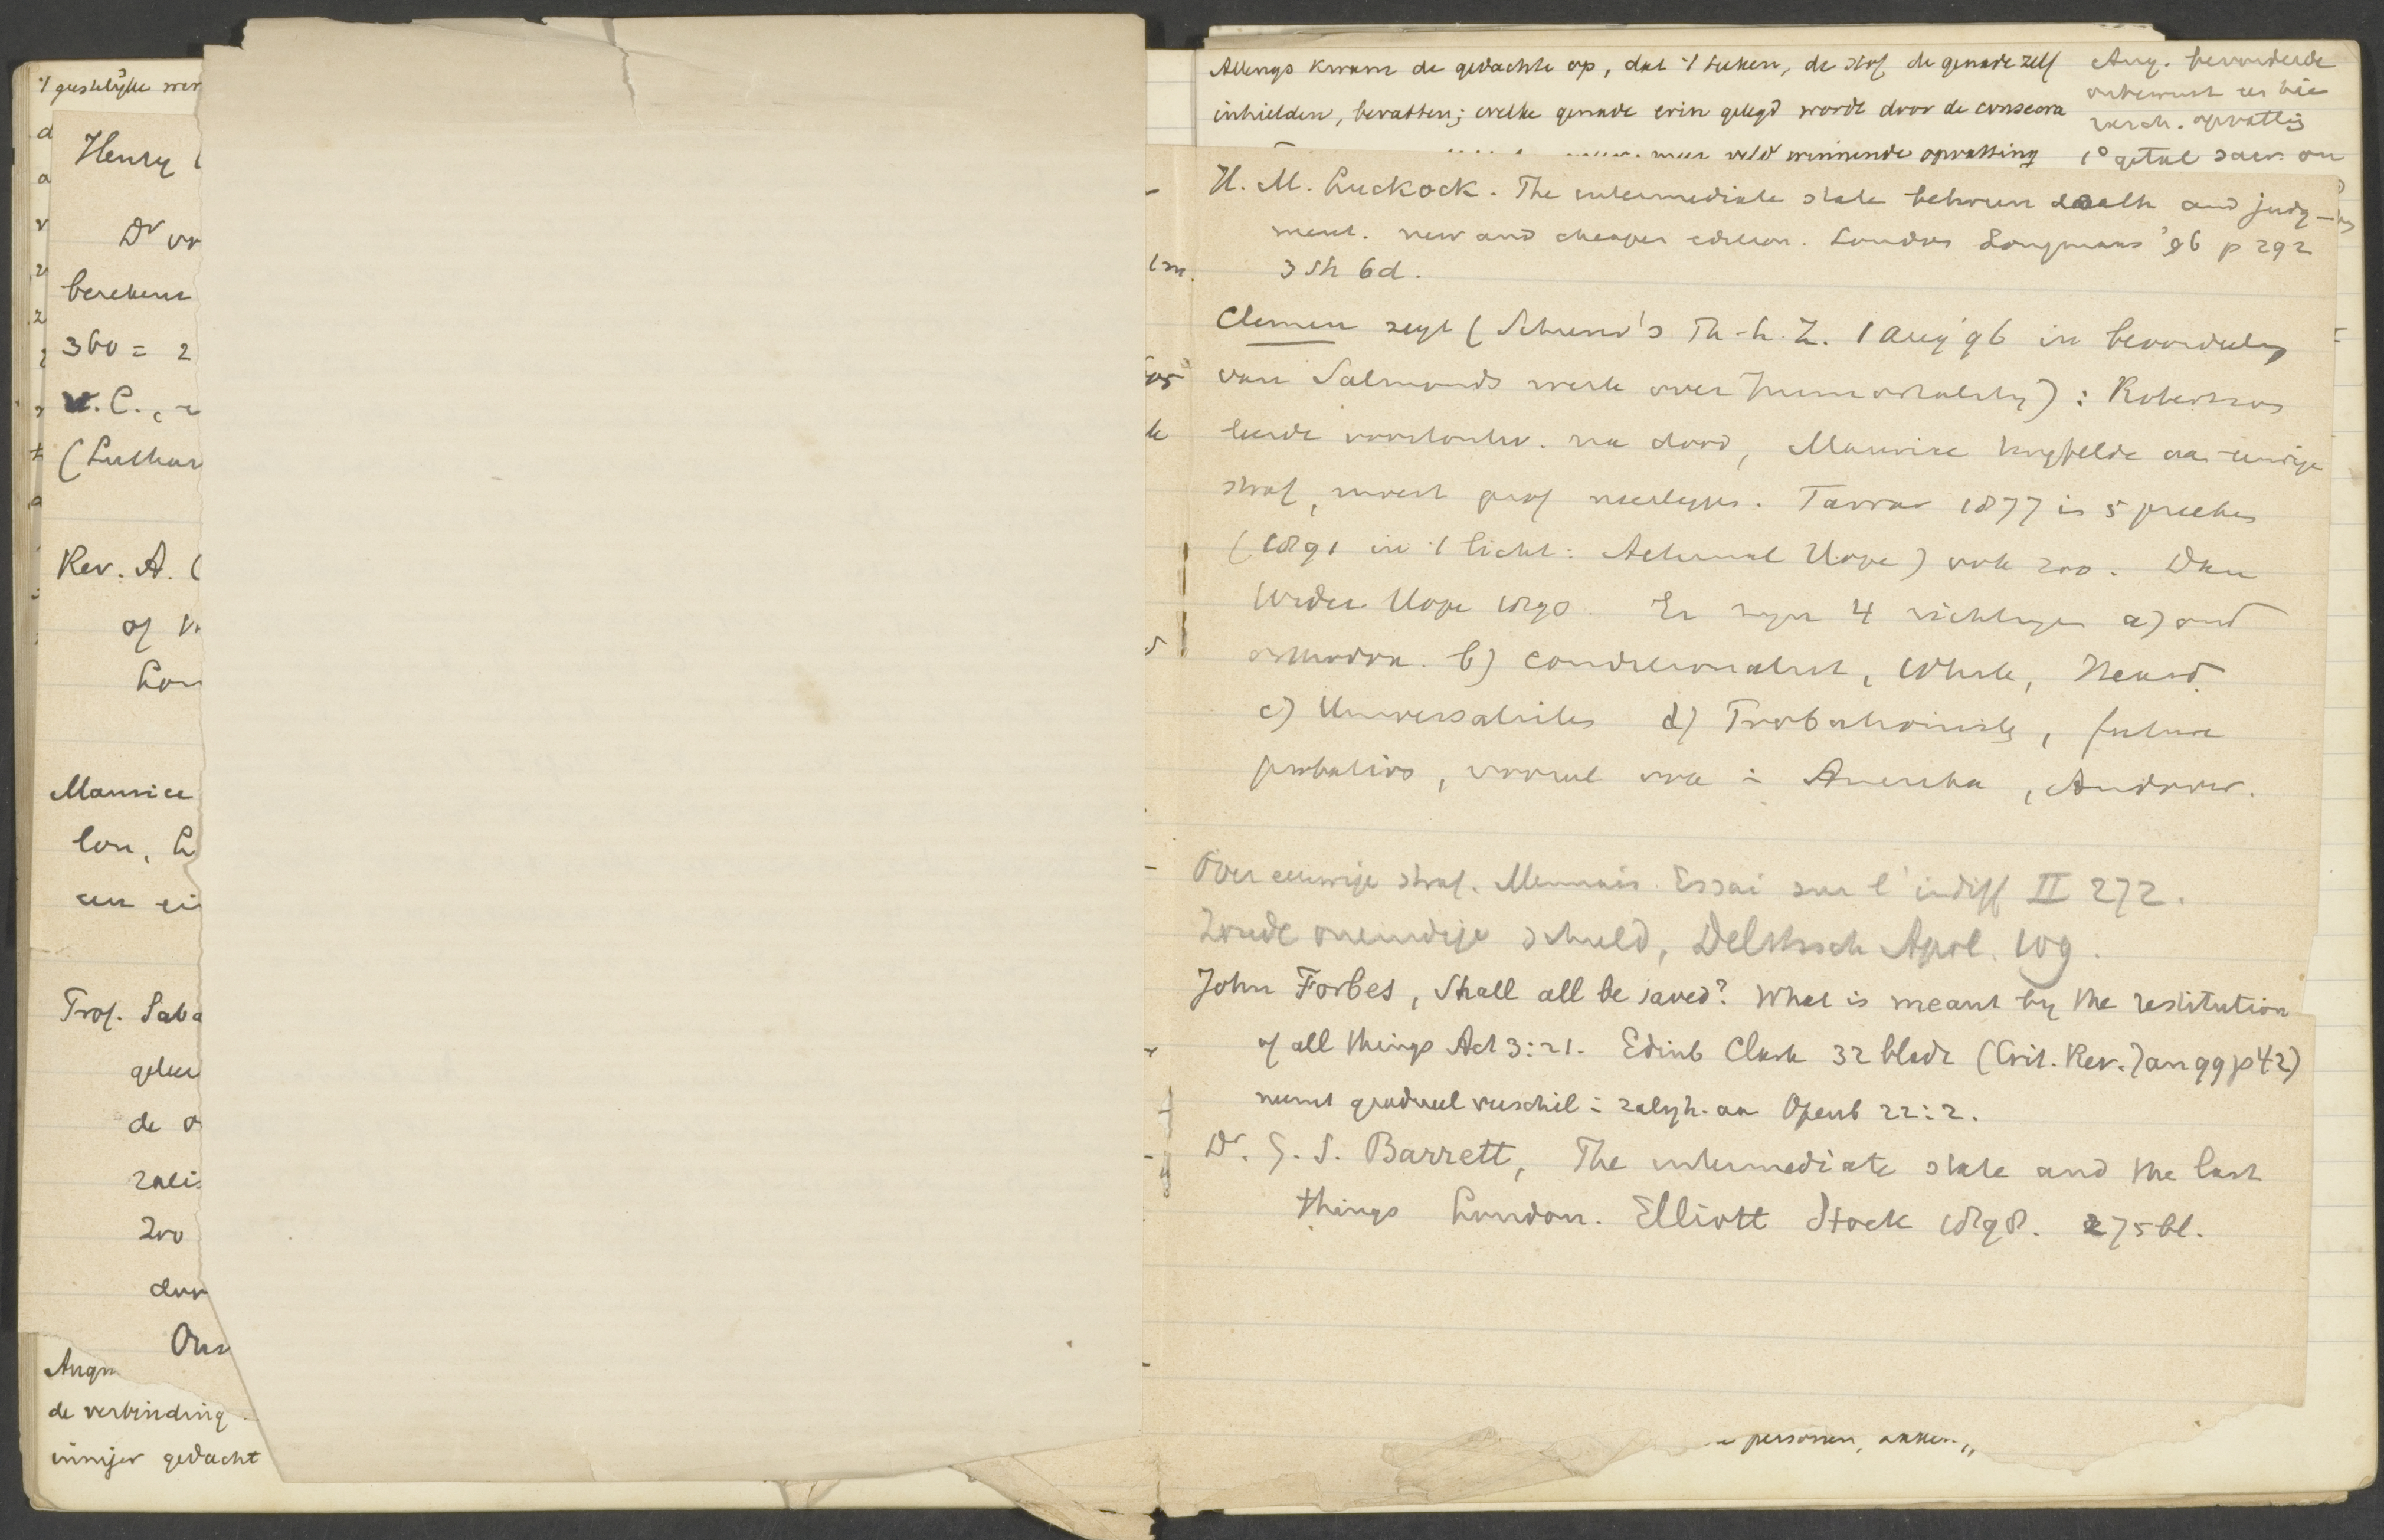 't geestelijke wer
Henry
Dr vr
bereken
360 = 2
v. C.,
(Luthar
Rev. A. C
of
Lon
Maurice
lon, L
een ei
Prof. Saba
geleer
de o
zalis
Zoo
door
Ons
Augu
de verbinding
inniger gedacht
Allengs kwam de gedachte op, dat 't teeken, de stof de genade zelf
inhielden, bevatten; welke genade erin gelegd wordt door de consecra
meer veld winnende opvatting
Aug. bevorderde
onbewust
versch. opvattig
1° getal sacr. en
H. M. Luckock. The intermediate state between death and judg-
ment. new and cheaper edition. London Longmans '96 p 292
3 sh 6d.
Clemen zegt (Schürer's Th. L. Z. 1 Aug '96 in beoordeeling
van Salmonds werk over Immortality): Robertson
leerde voortontw. na dood, Maurice twyfelde aan eeuwige
straf, moest prof neerleggen. Farrar 1877 in 5 preeken
(1891 in 't licht: Aeternal Hope) ook zoo. Dan
Wider Hope 1890. Er zyn 4 richtingen a) oud
orthodox. b) conditionalist, White, Heard
c) Universalistes d) Probationists, future
probation, vooral ook in Amerika, Andover.
Over eeuwige straf. Mennais Essai sur l'indiff II 272.
Zonde oneindige schuld, Delitzsch Apol. 109.
John Forbes, Shall all be saved? What is meant by the restitution
of all things Act 3:21. Edinb Clark 32 bladz (Crit. Rev. Jan 99 p 42)
neemt gradueel verschil in zaligh. aan Openb 22:2.
Dr. G. S. Barrett, The intermediate state and the last
things London. Elliott Stock 1898. 275 bl.
personen, akken